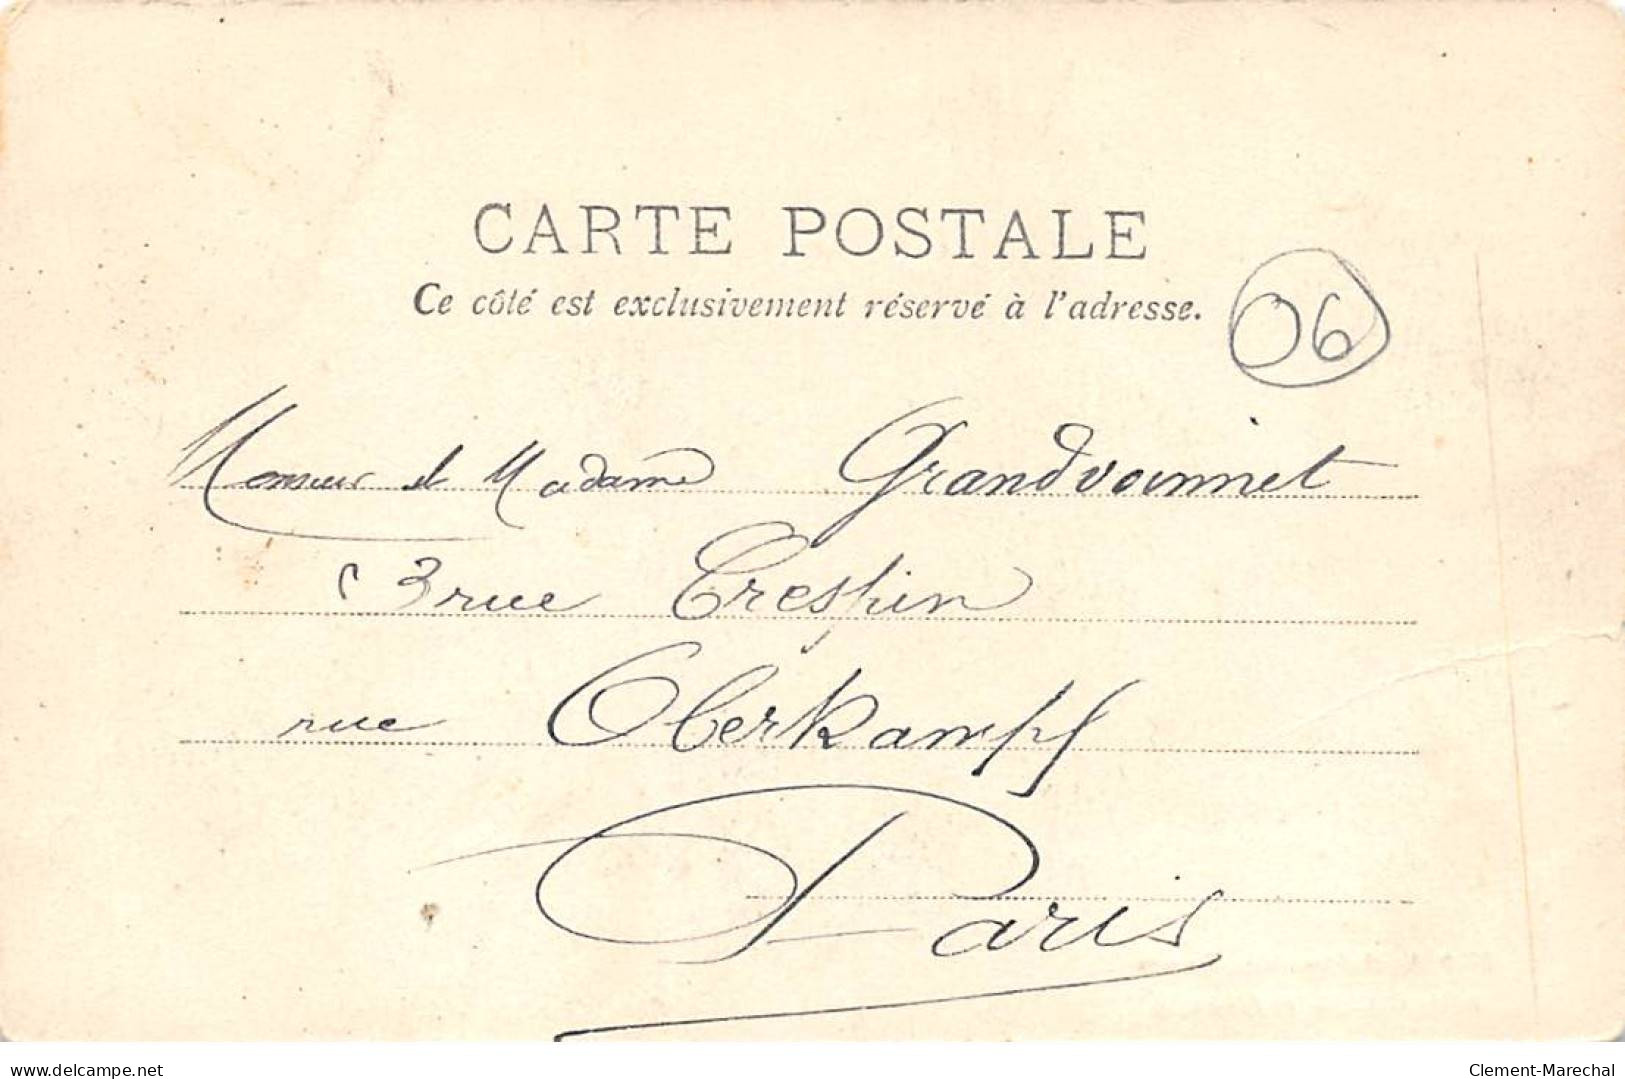 CARTE POSTALE
Ce côté est exclusivement réservé à l'adresse.
06
Monsieur et Madame Grandvoinnet
3 rue Crespin
rue Oberkampf
Paris
delcampe.net
Clement-Marechal